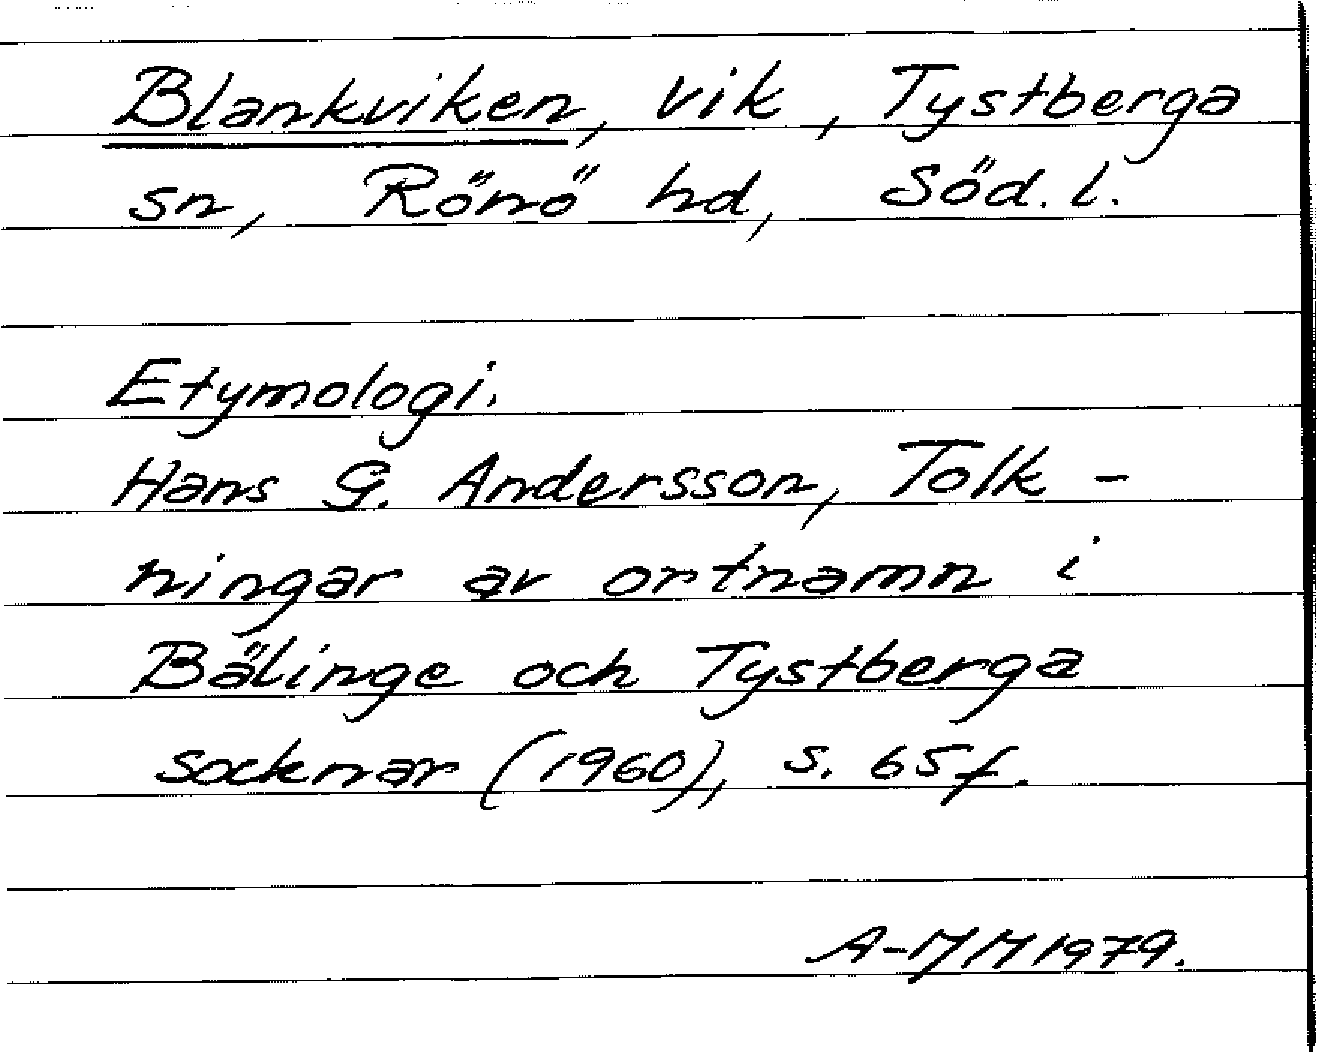 Blankviken, vik, Tystberga
sn, Rönö hd, Söd. l.
Etymologi.
Hans G. Andersson, Tolk-
ningar av ortnamn i
Bälinge och Tystberga
socknar (1960), s. 65 f.
1979.